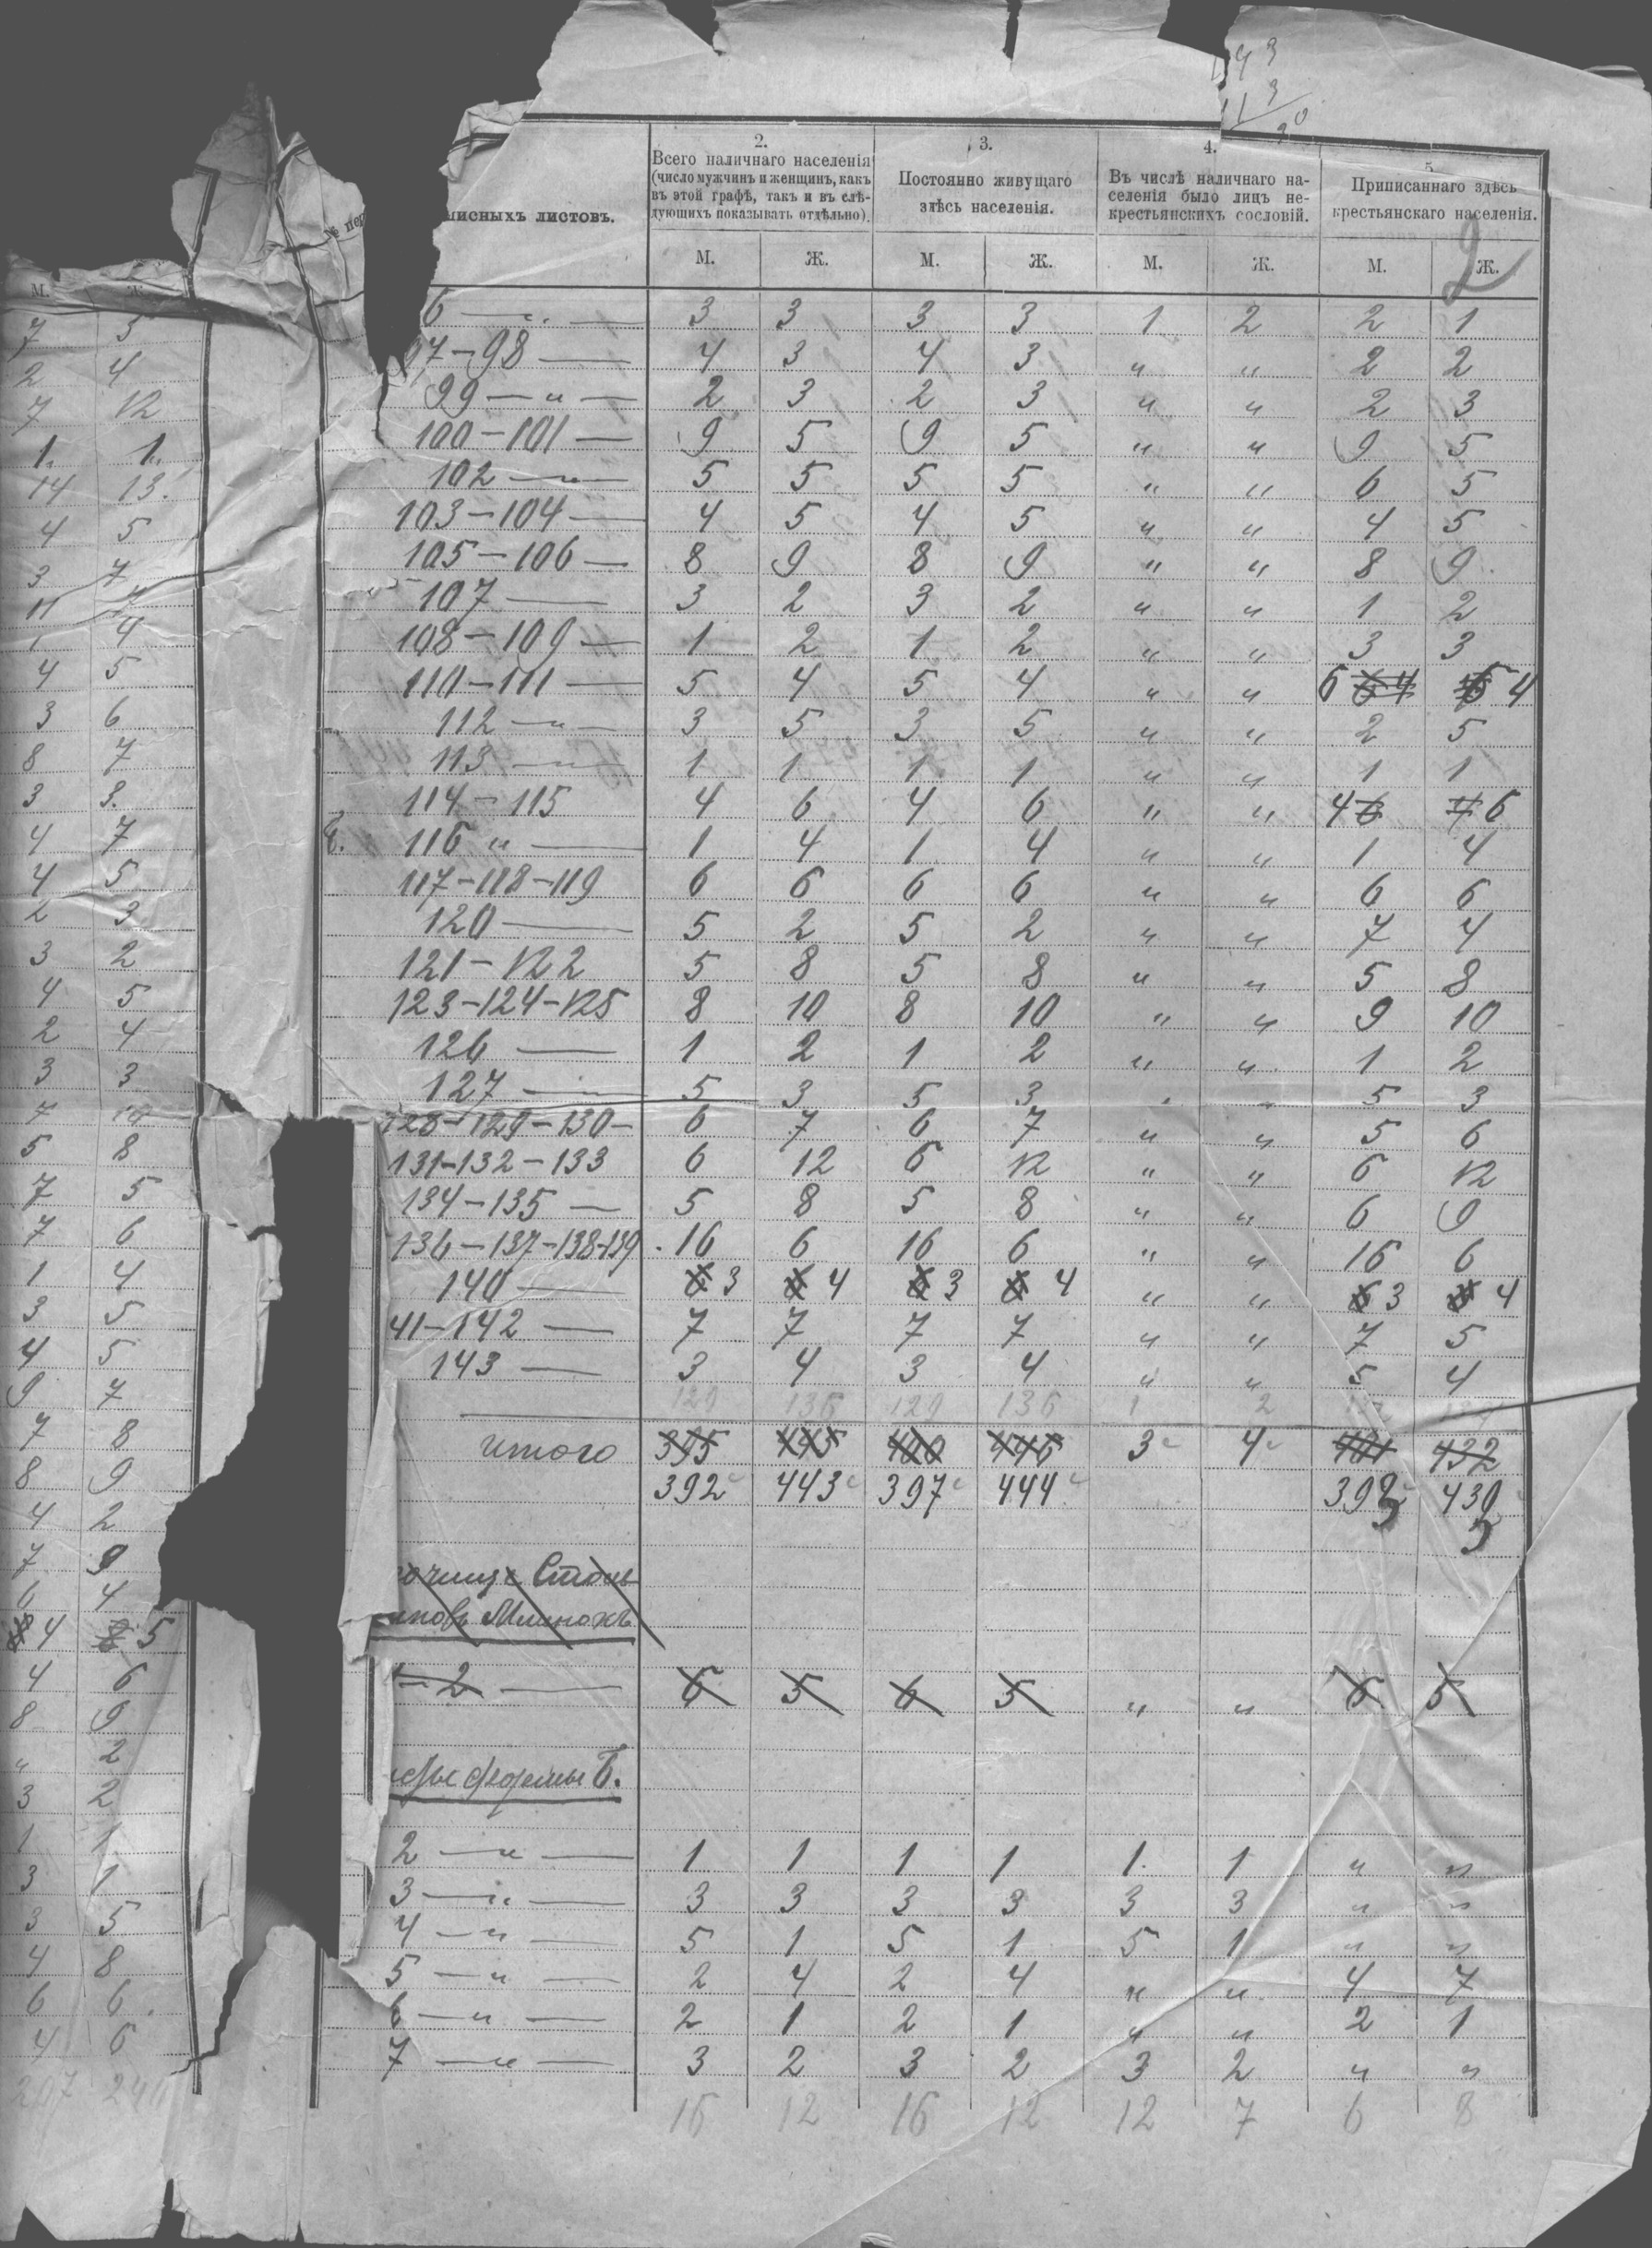 2. 3. 4. 5.
Всего наличнаго населенія
(число мужчинъ и женщинъ, какъ
въ этой графѣ, такъ и въ слѣ-
дующихъ показывать отдѣльно).
Постоянно живущаго
здѣсь населенія.
Въ числѣ наличнаго на-
селенія было лицъ не-
крестьянскихъ сословій.
Приписаннаго здѣсь
крестьянскаго населенія.
№ пер
писныхъ листовъ.
2
М. Ж. М. Ж. М. Ж. М. Ж.
6 — „ — 3 3 3 3 1 2 2 1
97 – 98 — 4 3 4 3 „ „ 2 2
99 — „ — 2 3 2 3 „ „ 2 3
100 – 101 — 9 5 9 5 „ „ 9 5
102 — „ — 5 5 5 5 „ „ 6 5
103 – 104 — 4 5 4 5 „ „ 4 5
105 – 106 — 8 9 8 9 „ „ 8 9
107 — 3 2 3 2 „ „ 1 2
108 – 109 — 1 2 1 2 „ „ 3 3
110 – 111 — 5 4 5 4 „ „ 6 4
112 — „ — 3 5 3 5 „ „ 2 5
113 — „ — 1 1 1 1 „ „ 1 1
114 – 115 4 6 4 6 „ „ 4 6 4 6
116 „ — 1 4 1 4 „ „ 1 4
117 – 118 – 119 6 6 6 6 „ „ 6 6
120 — 5 2 5 2 „ „ 7 4
121 – 122 5 8 5 8 „ „ 5 8
123 – 124 – 125 8 10 8 10 „ „ 9 10
126 — 1 2 1 2 „ „ 1 2
127 — „ — 5 3 5 3 „ „ 5 3
128 – 129 – 130 – 6 7 6 7 „ „ 5 6
131 – 132 – 133 6 12 6 12 „ „ 6 12
134 – 135 — 5 8 5 8 „ „ 6 9
136 – 137 – 138 – 139 16 6 16 6 „ „ 16 6
140 — 6 3 4 6 3 4 „ „ 6 3 4
41 – 142 — 7 7 7 7 „ „ 7 5
143 — 3 4 3 4 „ „ 5 4
129 136 129 136 1 2
итого 395 445 400 446 3 4 401 432
392 443 397 444 393 439
3
1 – 2 — 6 5 6 5 „ „ 6 5
2 — „ — 1 1 1 1 1 1 „ „
3 — „ — 3 3 3 3 3 3 „ „
4 — „ — 5 1 5 1 5 1 „ „
5 — „ — 2 4 2 4 „ „ 4 7
6 — „ — 2 1 2 1 „ „ 2 1
7 — „ — 3 2 3 2 3 2 „ „
16 12 16 12 12 7 6 8
М. Ж.
7 5
2 4
7 12
1 1
14 13
4 5
3 7
11 7
1 4
4 5
3 6
8 7
3 3
4 7
4 5
2 3
3 2
4 5
2 4
3 3
7 10
5 8
7 5
7 6
1 4
3 5
4 5
9 7
7 8
8 9
4 2
7 9
6 4
8 4 8 5
4 6
8 9
„ 2
3 2
1 1
3 1
3 5
4 8
6 6
4 6